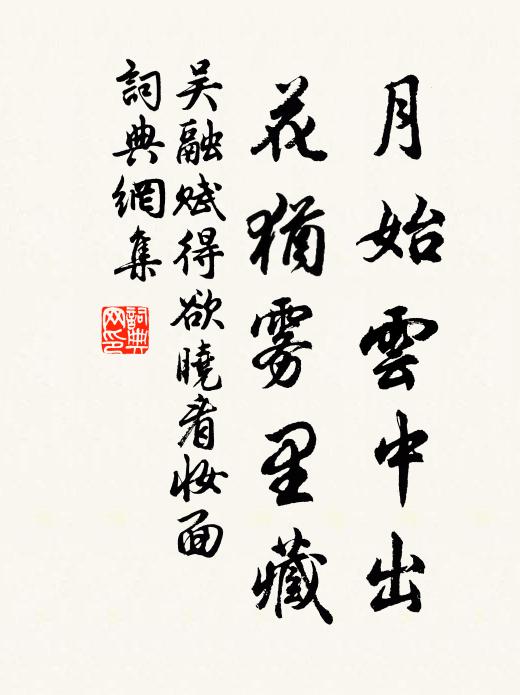 月始雲中出
花猶雾里藏
吴融赋得欲曉看妝面
詞典網集
詞典网印